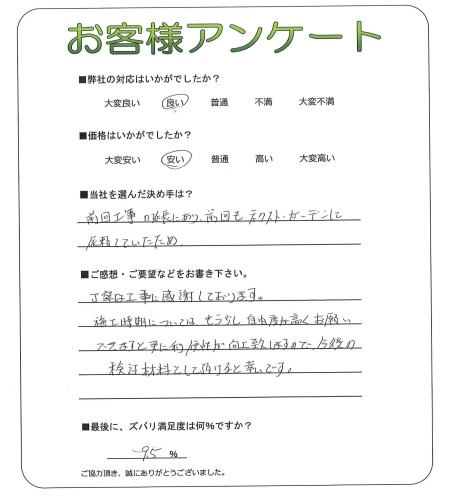 お客様アンケート
■弊社の対応はいかがでしたか？
大変良い 良い 普通 不満 大変不満
■価格はいかがでしたか？
大変安い 安い 普通 高い 大変高い
■当社を選んだ決め手は？
前回工事の延長にあり、前回もネクスト・ガーデンに
依頼していたため
■ご感想・ご要望などをお書き下さい。
丁寧な工事に感謝しております。
施工時期については もう少し 自由度が高くお願い
できますと更に利便性が向上致しますので、今後の
検討材料として頂けると幸いです。
■最後に、ズバリ満足度は何％ですか？
95 %
ご協力頂き、誠にありがとうございました。